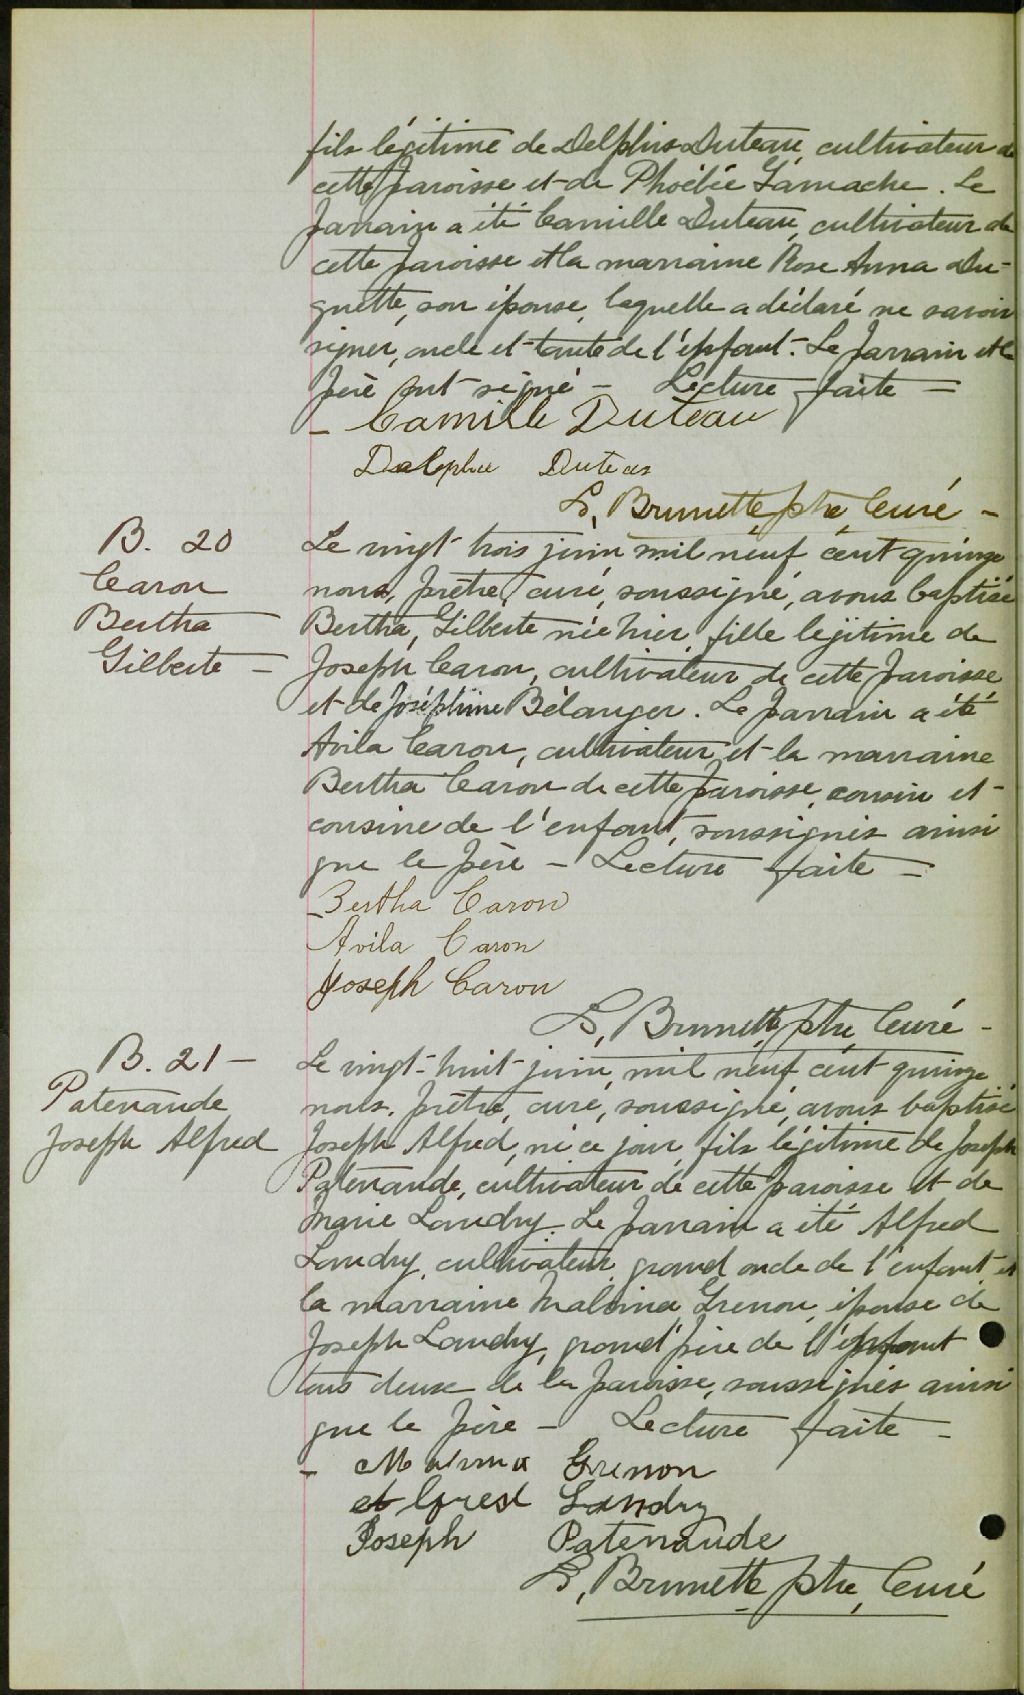 fils légitime de Delphis Duteau, cultivateur de
cette paroisse et de Phoébée Gamache. Le
parrain a été Camille Duteau, cultivateur de
cette paroisse et la marraine Rose Anna Du-
quette, son épouse, laquelle a déclaré ne savoir
signer, oncle et tante de l'enfant. Le parrain et le
père ont signé - Lecture faite =
- Camille Duteau
Duteau
L, Brunette ptre Curé -
B. 20
Caron
Bertha
Gilberte -
Le vingt trois juin mil neuf cent quinze
nous, prêtre, curé, soussigné, avons baptisé
Bertha, Gilberte née hier, fille légitime de
Joseph Caron, cultivateur de cette paroisse
et de Joséphine Bélanger. Le parrain a été
Avila Caron, cultivateur et la marraine
Bertha Caron de cette paroisse, cousin et
cousine de l'enfant, soussignés ainsi
que le père - Lecture faite =
Bertha Caron
Avila Caron
Joseph Caron
L, Brunette, ptre, Curé -
B. 21 -
Patenaude
Joseph Alfred
Le vingt-huit juin, mil neuf cent quinze
nous, prêtre, curé, soussigné, avons baptisé
Joseph Alfred, né ce jour, fils légitime de Joseph
Patenaude, cultivateur de cette paroisse et de
Marie Landry. Le parrain a été Alfred
Landry, cultivateur, grand oncle de l'enfant et
la marraine Malvina Grenon, épouse de
Joseph Landry, grand'père de l'enfant
tous deux de la paroisse, soussignés ainsi
que le père - Lecture faite -
- Grenon
Landry
Joseph Patenaude
L, Brunette, ptre, Curé